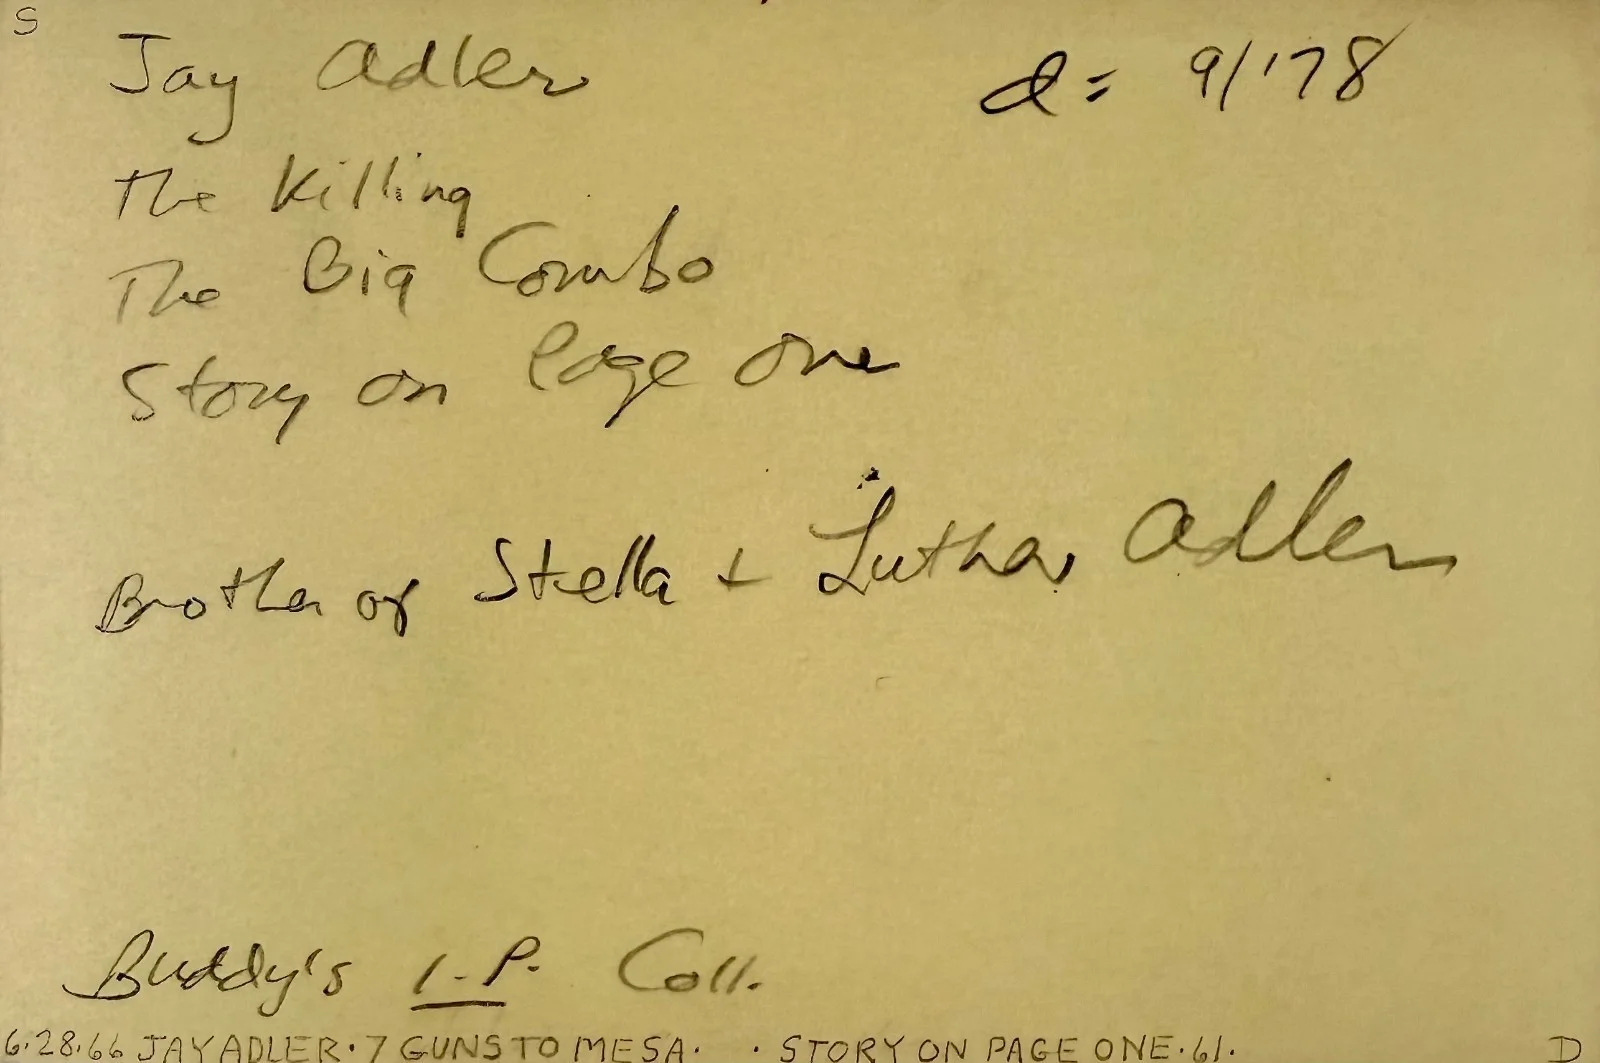 S
Jay Adler d= 9/'78
The Killing
The Big Combo
Story on Page One
Brother of Stella + Luther Adler
Buddy's I.P. Coll.
6.28.66 JAY ADLER. 7 GUNS TO MESA. . STORY ON PAGE ONE.61. D